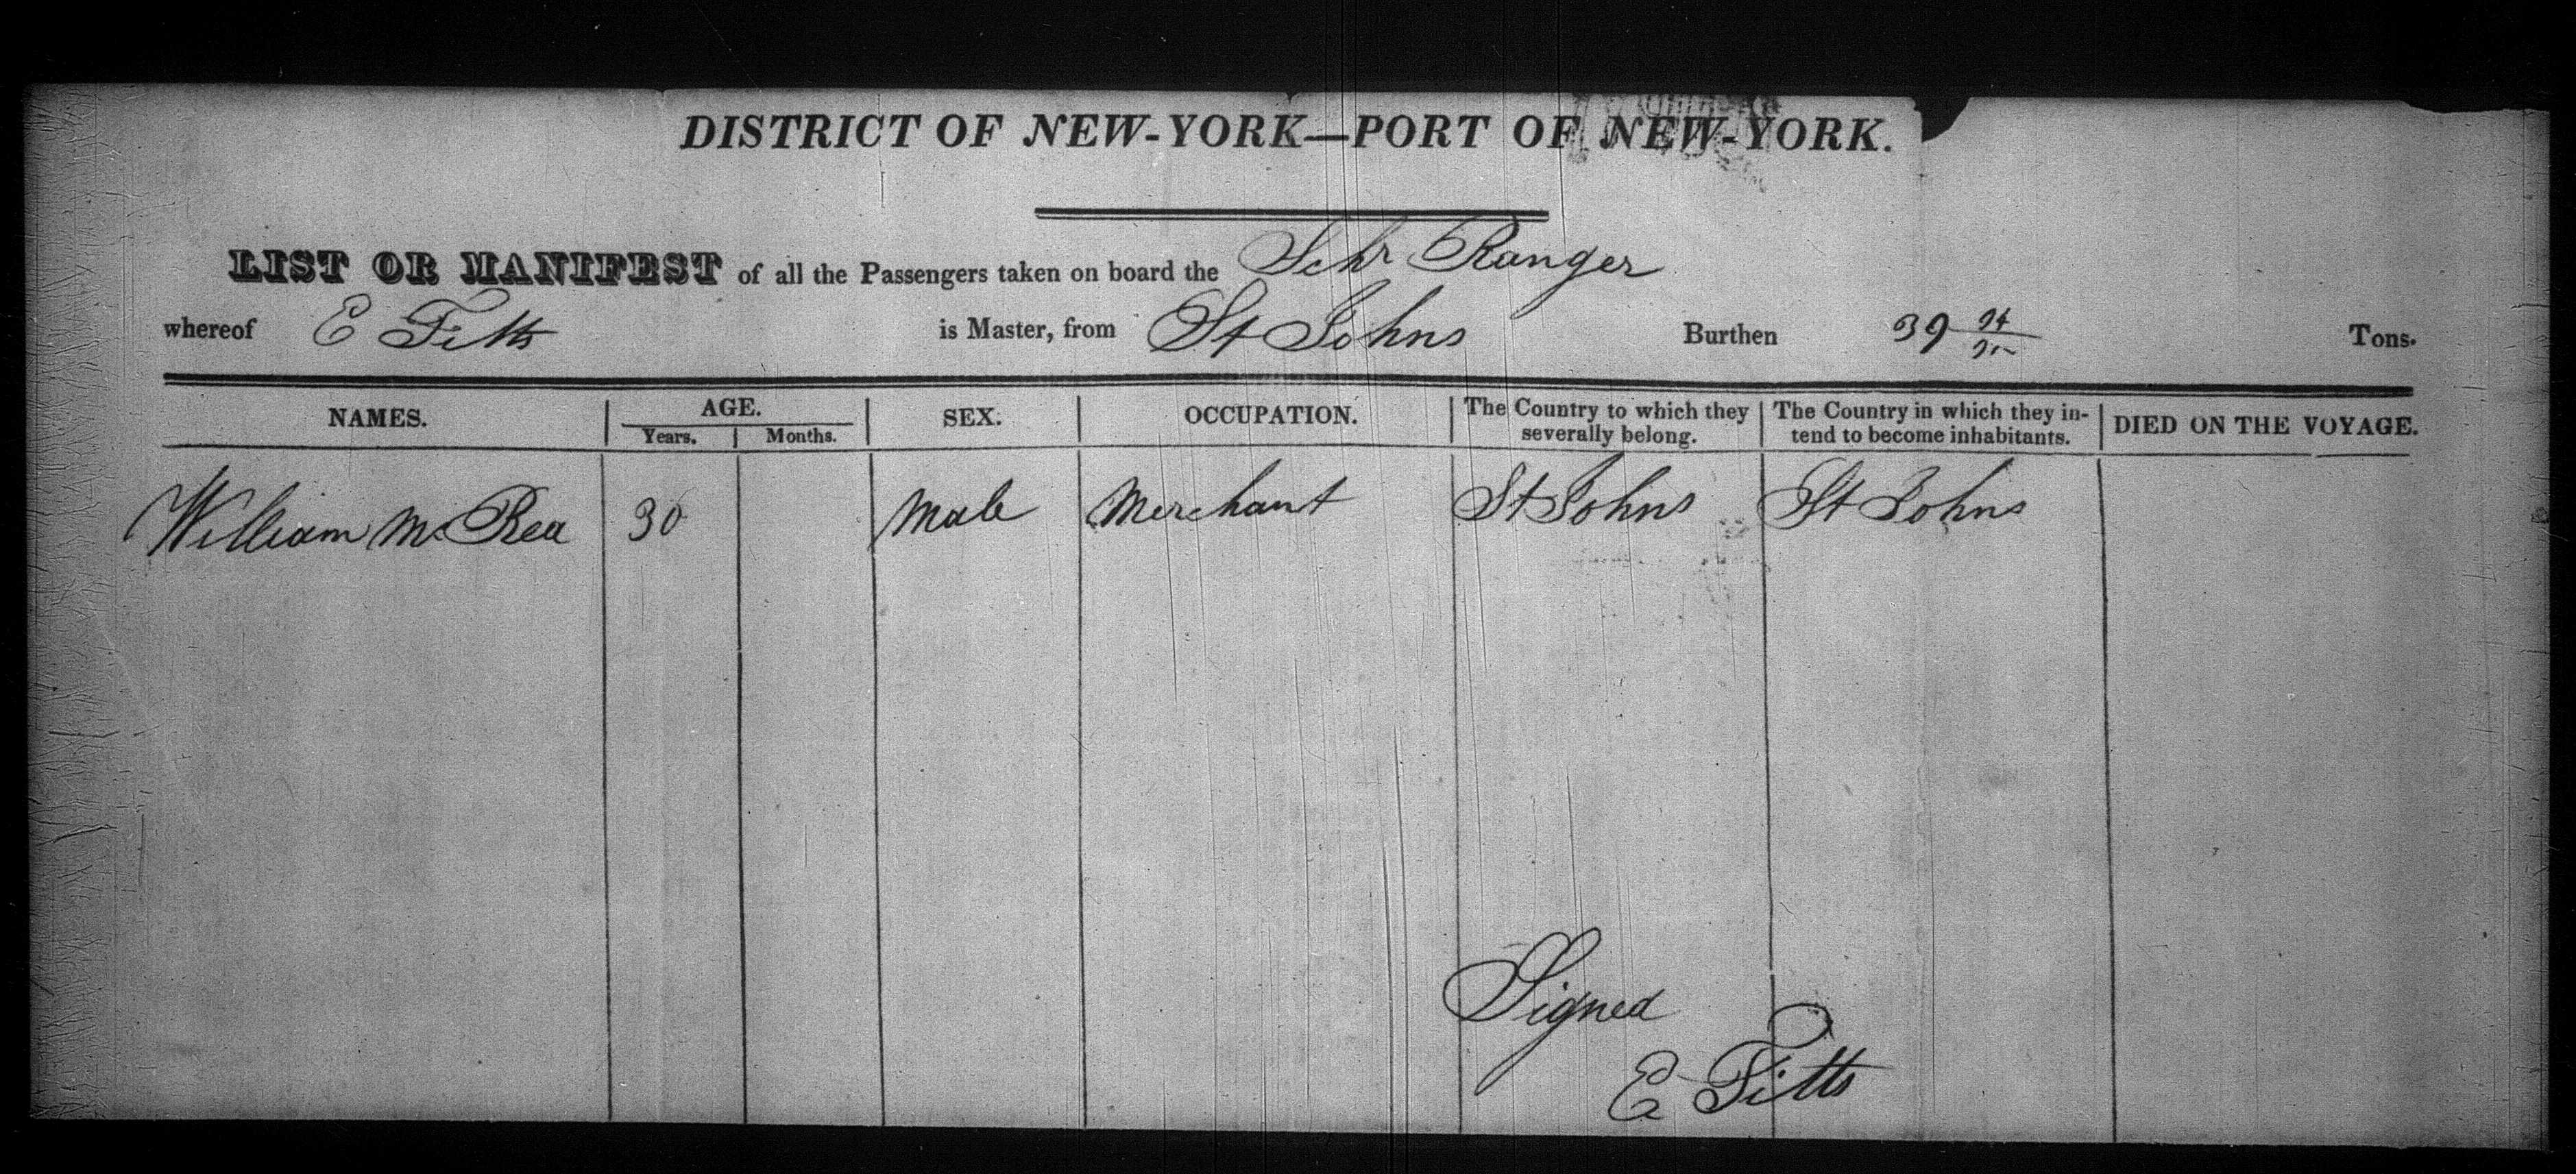 DISTRICT OF NEW-YORK—PORT OF NEW-YORK.
LIST OR MANIFEST of all the Passengers taken on board the Schr Ranger
whereof E Fitts is Master, from St Johns Burthen 39 94/95 Tons.
NAMES. AGE. Years. Months. SEX. OCCUPATION. The Country to which they severally belong. The Country in which they intend to become inhabitants. DIED ON THE VOYAGE.
William McRea 30 Male Merchant St Johns St Johns
Signed
E Fitts